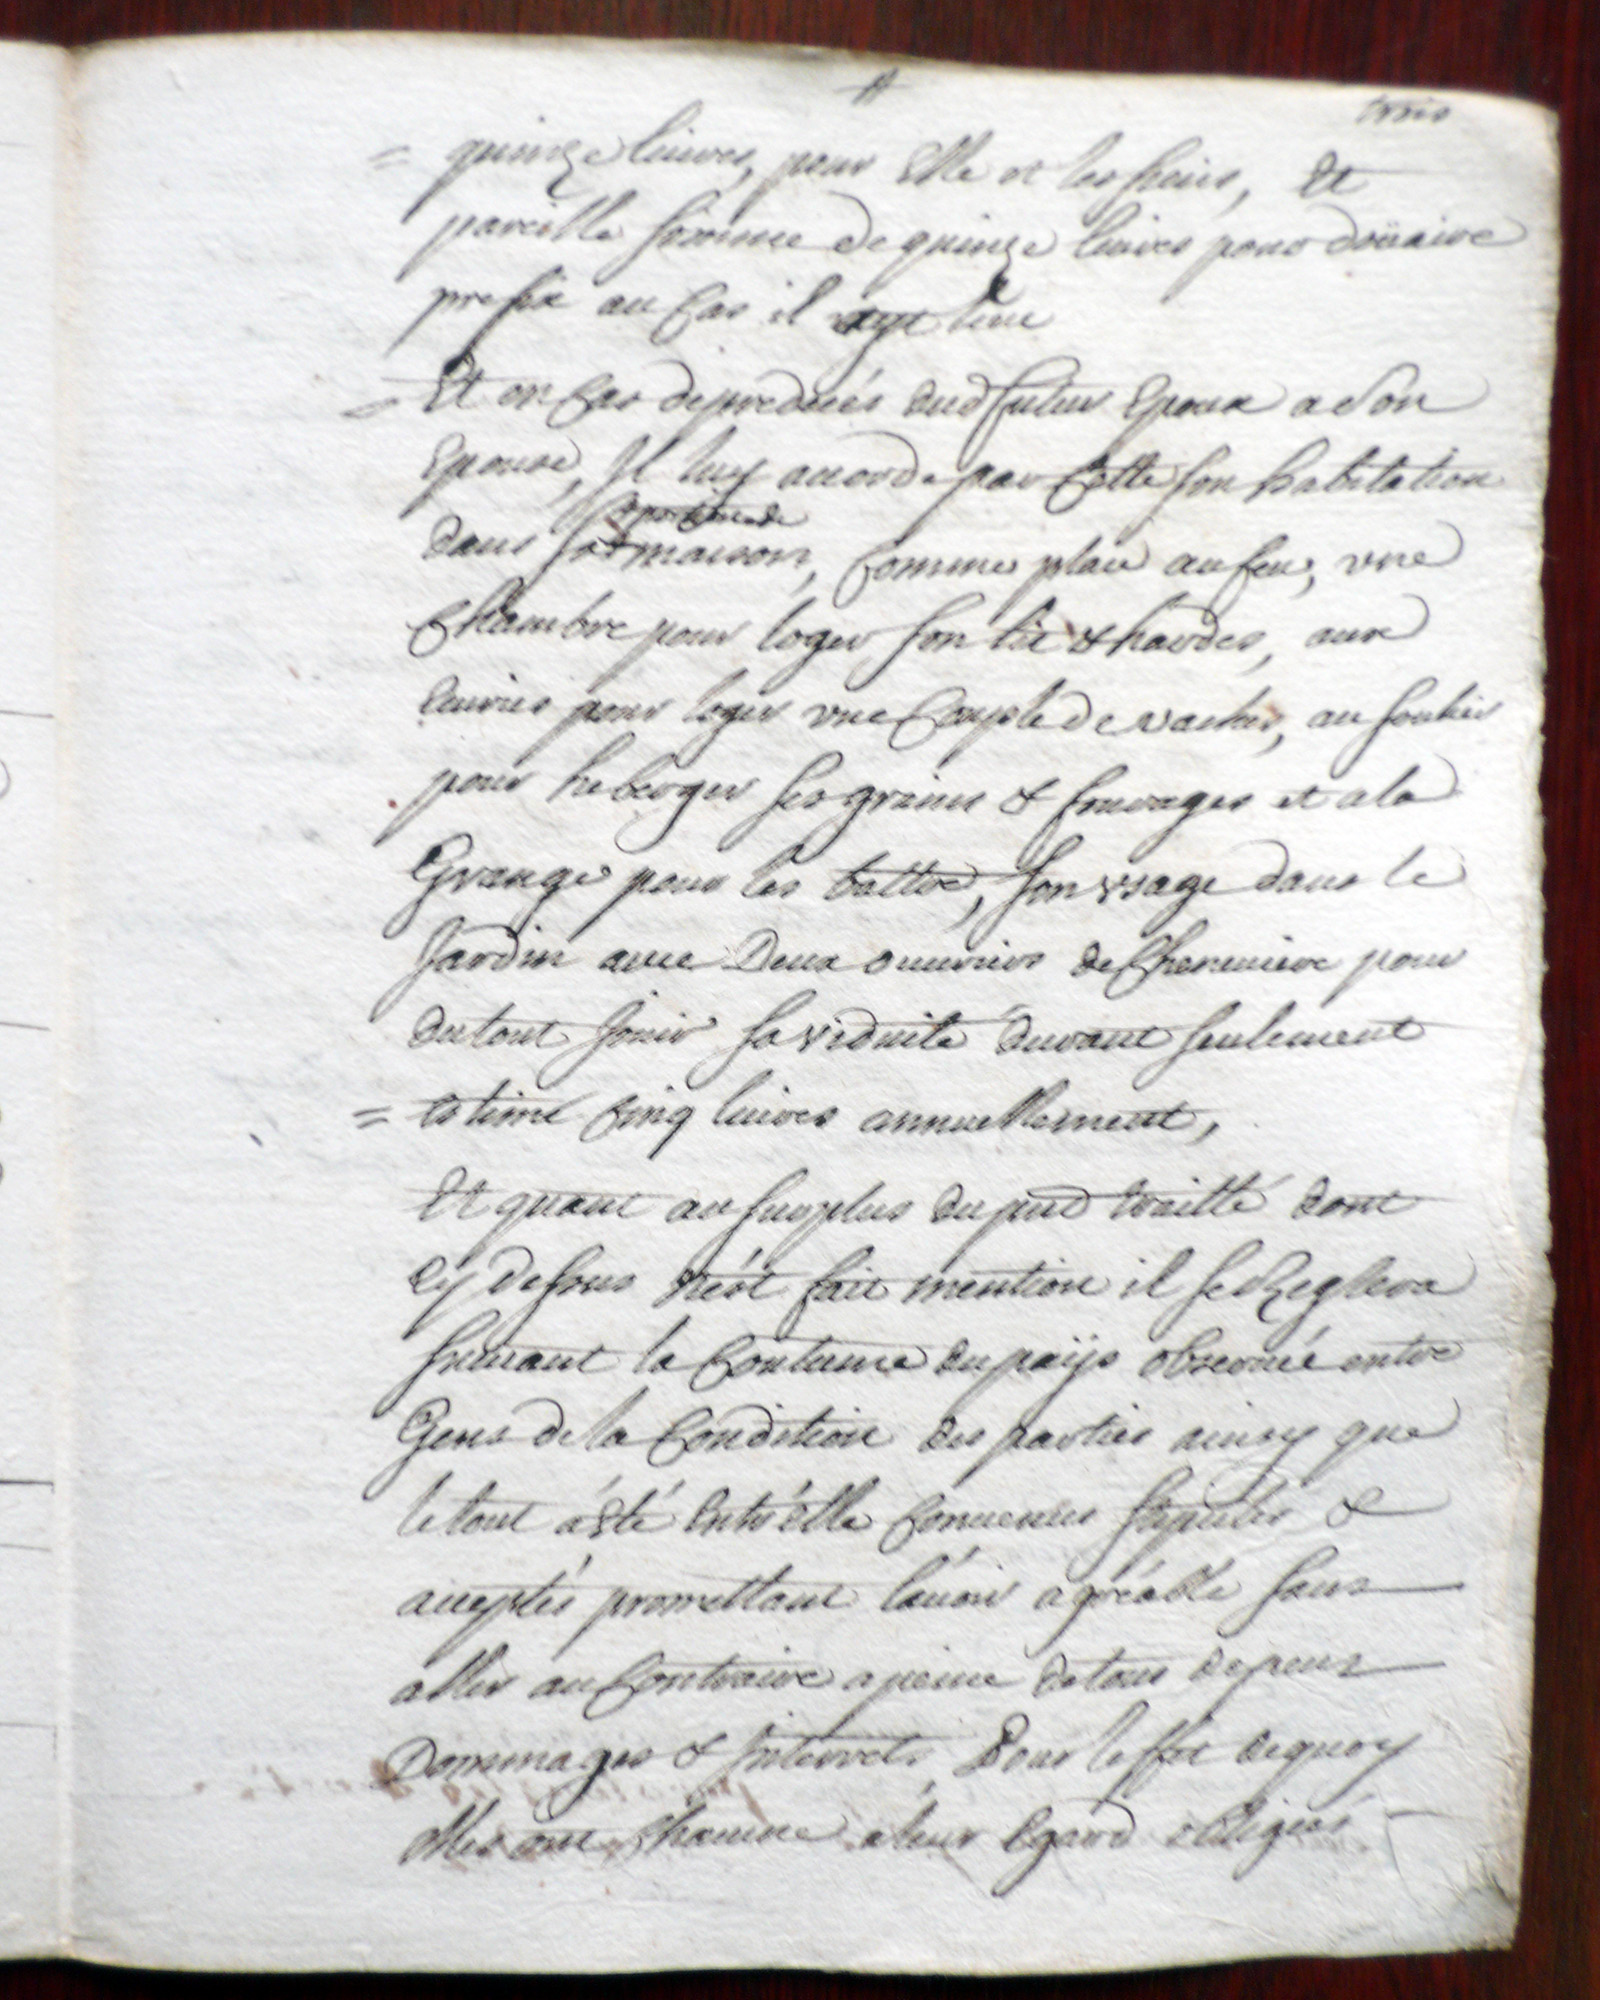 trois
= quinze livres, pour Elle et les siens, Et
pareille somme de quinze livres pour doüaire
prefix au Cas il ayt lieu
Et en Cas de predecés dud futur Epoux a son
Epouse, Il luy accorde par Cette son habitation
portion de
dans sa maison, Comme place au feu, une
Chambre pour loger son lit & hardes, aux
Ecuries pour loger une Couple de vaches, au
pour heberger ses grains & fourages et a la
Grange pour les battre, son usage dans le
Jardin avec Deux ouvriers de Cheneviere pour
du tout Jouir sa viduité durant seulement
= estimé Cinq livres annuellement,
Et quant au surplus du pnt traitté dont
Cy dessus n'est fait mention il se Reglera
suivant la Coutume du païjs observée entre
Gens de la Condition des parties ainsy que
le tout a été Entr'elle Convenües stipulés &
acceptés promettant l'avoir agréable sans
aller au Contraire a peine de tous depens
Dommages & Interrets Pour l'effet dequoy
Elles ont Chacune a leur Egard obligées